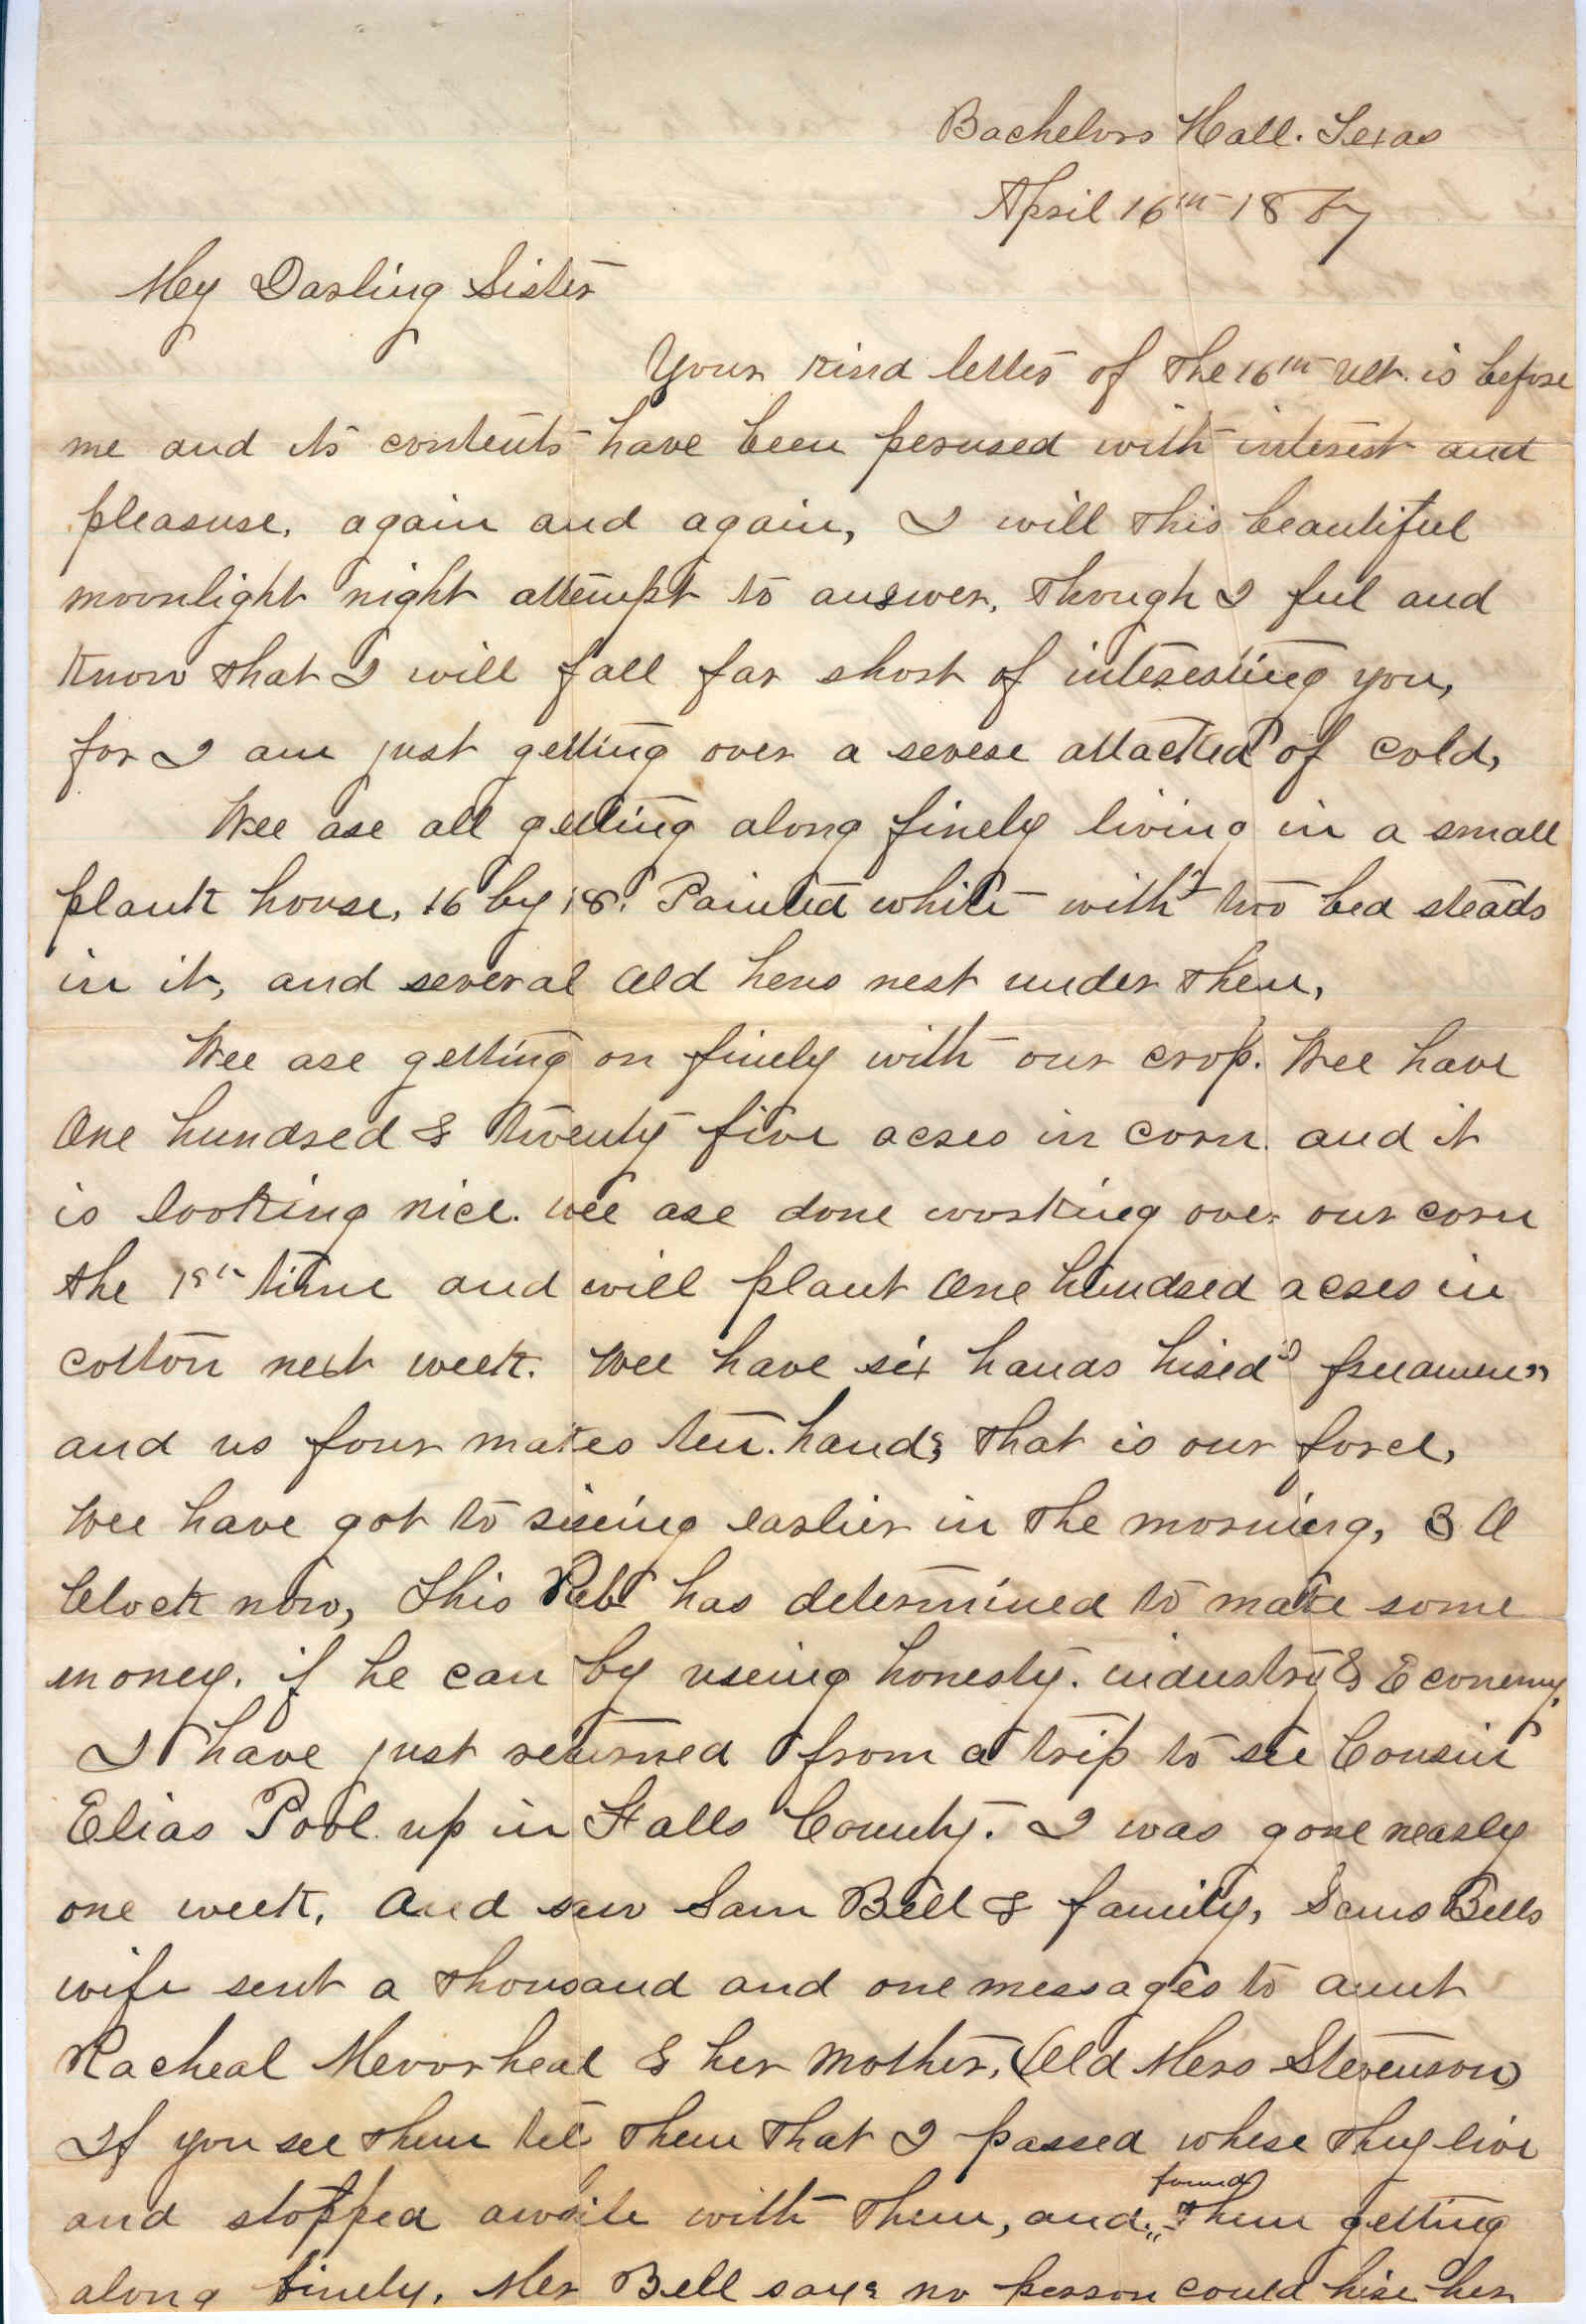 Bachelors Hall. Texas
April 16th 1867
My Darling Sister
Your kind letter of the 16th ult. is before
me and its contents have been perused with interest and
pleasure, again and again, I will this beautiful
moonlight night attempt to answer, though I feel and
know that I will fall far short of interesting you,
for I am just getting over a severe attacked of cold,
Wee are all getting along finely living in a small
plank house, 16 by 18. Painted white with two bed steads
in it, and several old hens nest under them,
Wee are getting on finely with our crop. Wee have
One hundred & twenty five acres in corn. and it
is looking nice. wee are done working over our corn
the 1st time and will plant One hundred acres in
cotton next week. Wee have six hands hired "freamen"
and us four makes ten. hands that is our force,
Wee have got to riseing earlier in the morning, 3 O
Clock now, this Reb has determined to make some
money. if he can by useing honesty. industry & Economy.
I have just returned from a trip to see Cousin
Elias Pool. up in Falls County. I was gone nearly
one week, And saw Sam Bell & family, Sams Bells
wife sent a thousand and one messages to aunt
Racheal Mevorheal & her mother, (Old Mers Stevenson)
If you see them tell them that I passed where they live
and stopped awhile with them, and found them getting
along finely. Mer Bell says no person could hire her